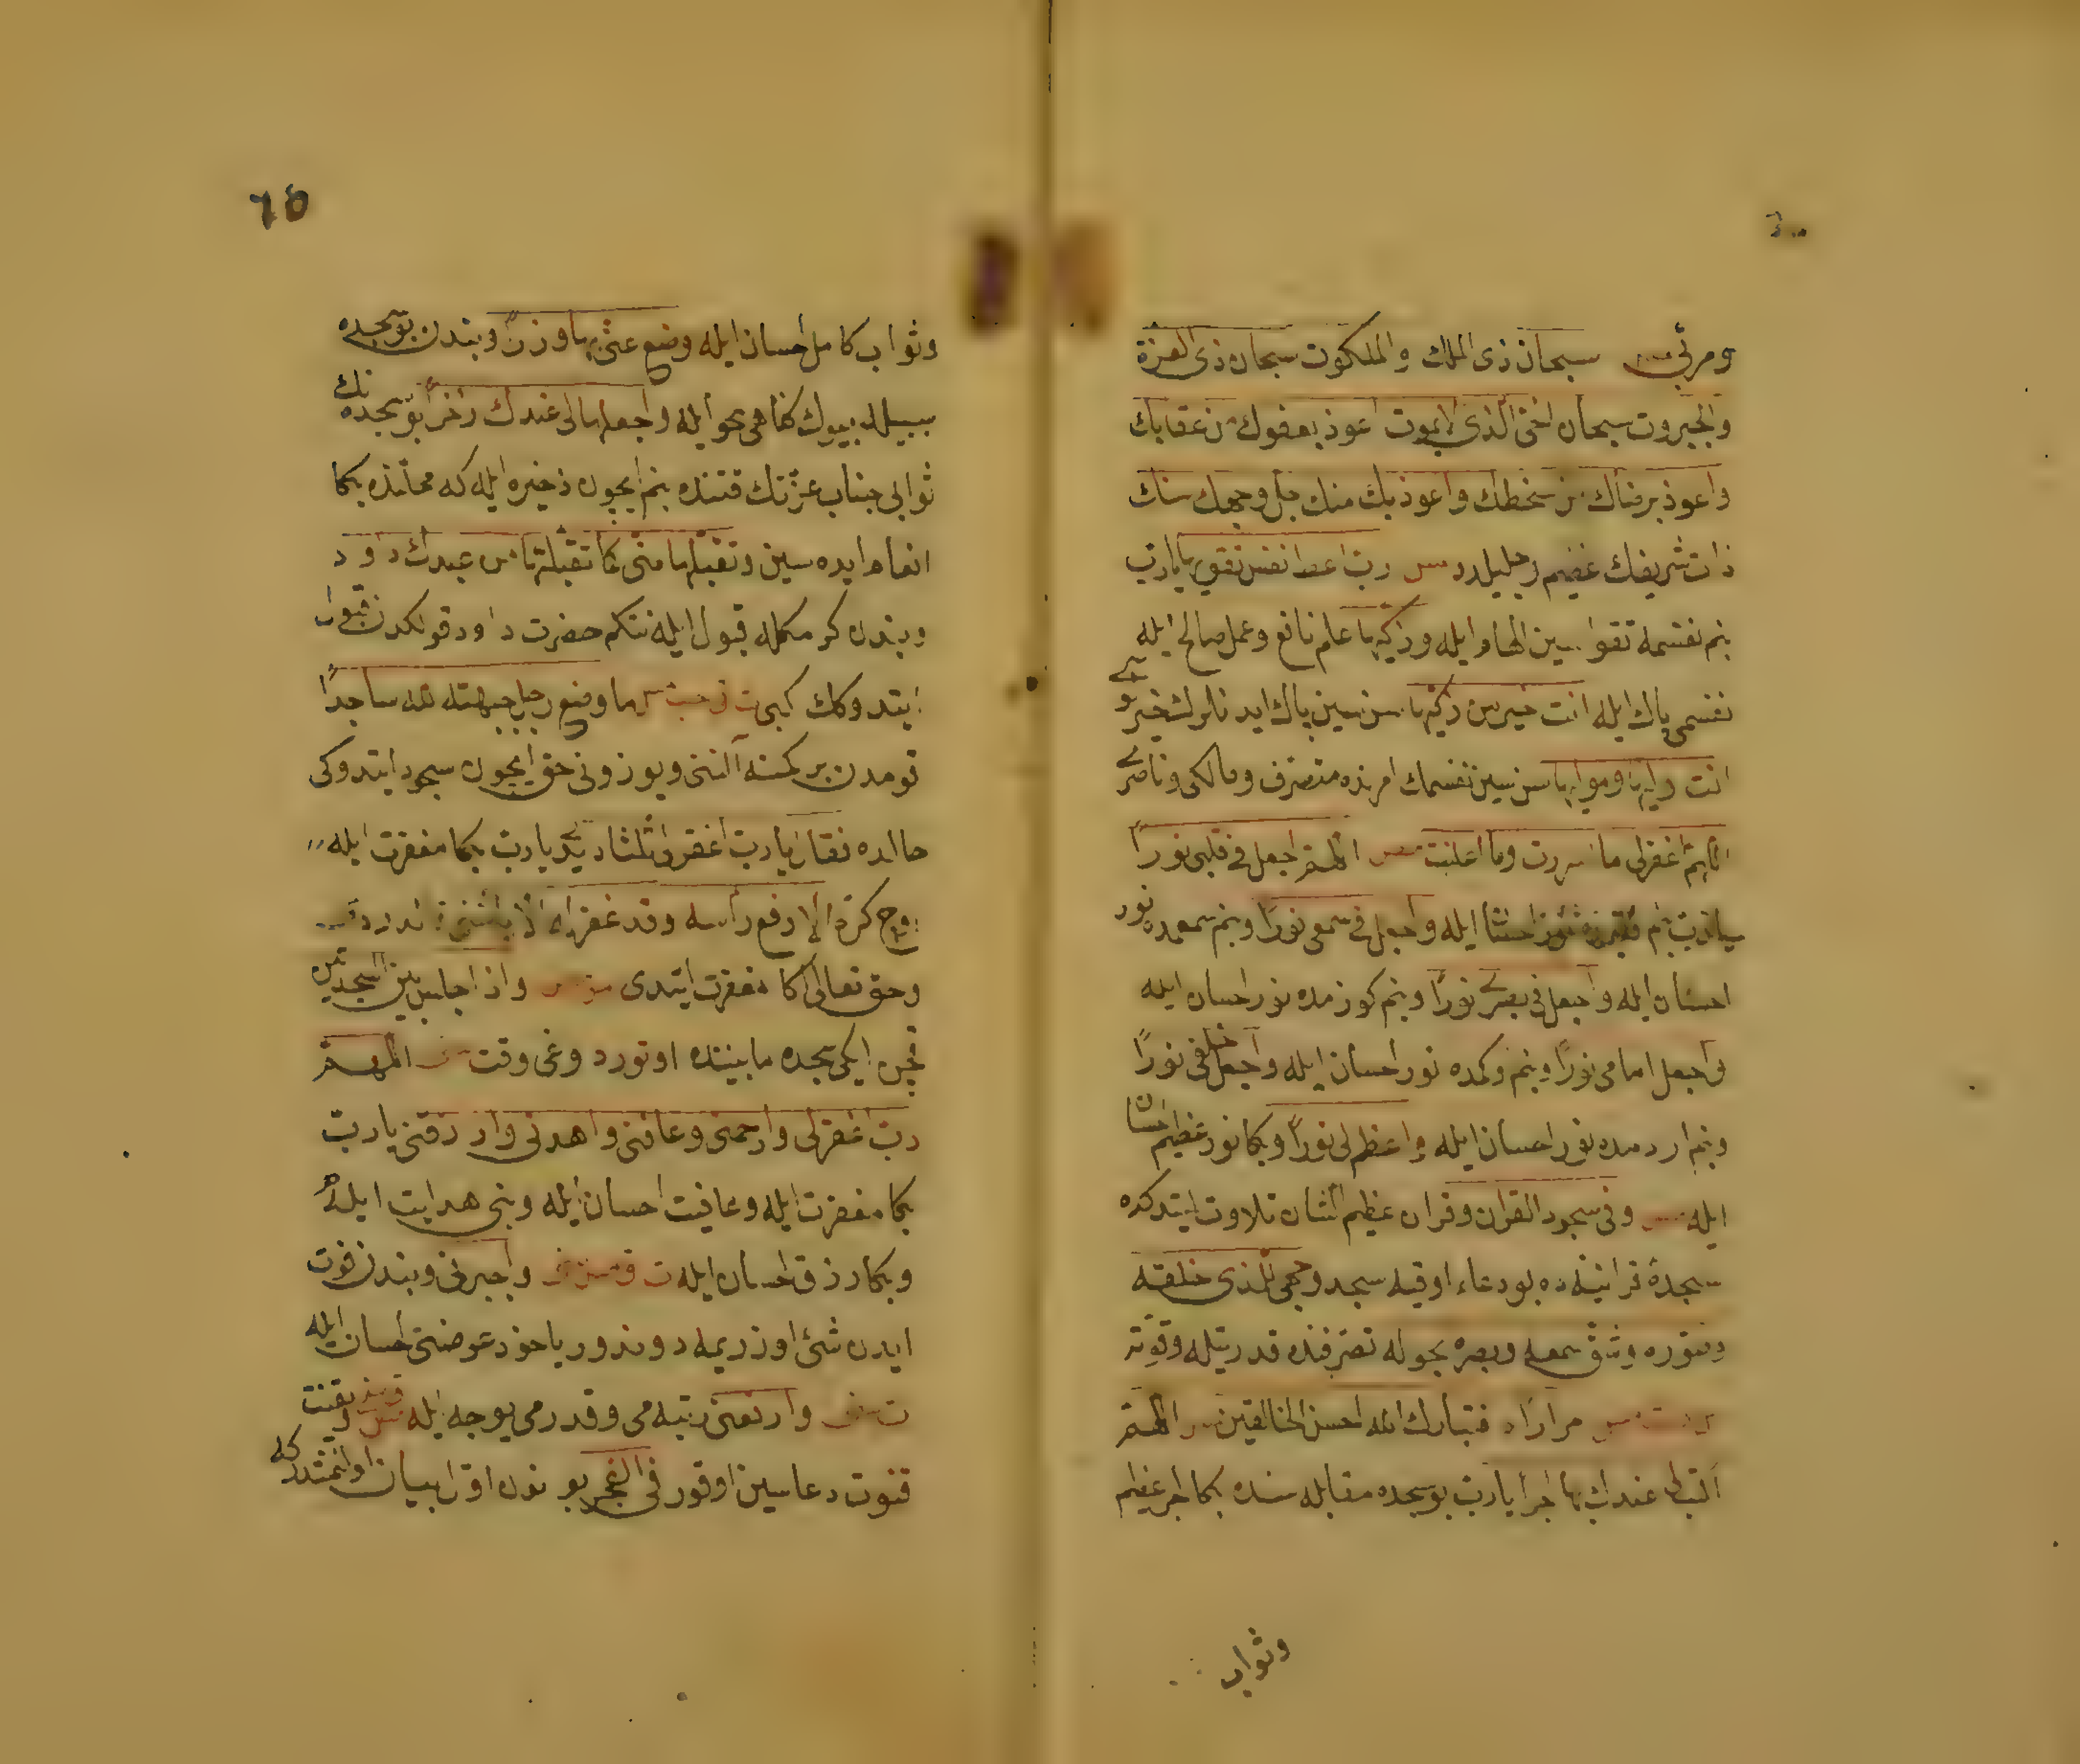 ومربی سبحان ذی الملك و الملكوت سبحان ذی العزة
والجبروت سبحان الحی الذی لا یموت اعوذ بعفوك من عقابك
واعوذ برضاك من سخطك واعوذ بك منك جل وجهك سنك
ذات شریفك عظیم وجلیلدر رب اعط نفسی تقویها یارب
بنم نفسمه تقواسین الهام ایله وزكها علم نافع وعمل صالح ایله
نفسمی پاك ایله انت خیر من زكیها سن سین پاك ایدنلرك خیرلو
انت ولیها ومولیها سن سین نفسمك امرنده متصرف ومالكی وناصری
اللهم اغفرلی ما اسررت وما اعلنت اللهم اجعل فی قلبی نورا
یارب بنم احسان ایله واجعل فی سمعی نورا وبنم سمعمده نور
احسان ایله واجعل فی بصری نورا وبنم كوزمده نور احسان ایله
واجعل امامی نورا وبنم وكمده نور احسان ایله واجعل خلفی نورا
وبنم اردمده نور احسان ایله واعظم لی نورا وبكا نور عظیم احسان
ایله وفی سجود القران وقران عظیم الشان تلاوت ایتدكده
سجدهٔ قرانیه ده بو دعاء اوقیه سجد وجهی للذی خلقه
وصوره وشق سمعه وبصره بحوله تصرفنده قدرتیله وقوته
مرارا فتبارك الله احسن الخالقین اللهم
اكتب لی عندك بها اجرا یارب بو سجده مقابله سنده بكا اجر عظیم
وثواب
٦٥
وثواب كامل احسان ایله وضع عنی بها وزرا وبندن بو سجده
سببیله بیوك كناهی محو ایله واجعلها لی عندك ذخرا بو سجده نك
ثوابی جناب عزتك قتنده بنم ایچون ذخیره ایله كه محلنده بكا
انعام ایده سین وتقبلها منی كما تقبلتها من عبدك داود
وبندن كرمكله قبول ایله نتكم حضرت داود قولكدن قبول
ایتدوكك كبی ما وضع رجل جبهته لله ساجدا
قومدن بر كمسنه آلننی ویوزونی حق ایچون سجود ایتدوكی
حالده فقال یارب اغفرلی ثلثا دیدی یارب بكا مغفرت ایله
اوچ كره الا رفع رأسه وقد غفر له
وحق تعالی اكا مغفرت ایتدی واذا جلس بین السجدتین
قچن ایكی سجده مابیننده اوتوردوغی وقت اللهم
رب اغفرلی وارحمنی وعافنی واهدنی وارزقنی یارب
بكا مغفرت ایله وعافیت احسان ایله وبنی هدایت ایله
وبكا رزق احسان ایله واجبرنی وبندن فوت
ایدن شی اوزریمه دوندور یاخود عوضنی احسان ایله
وارفعنی رتبه می وقدرمی یوجه ایله ویقنت
قنوت دعاسین اوقور فی الفجر بو نون اول بیان اولنمشدر كه